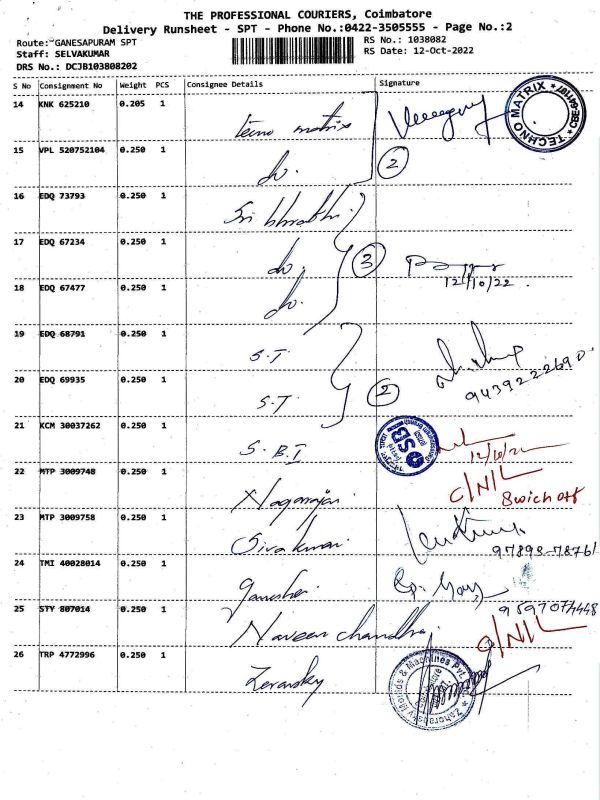 THE PROFESSIONAL COURIERS, Coimbatore
Delivery Runsheet - SPT - Phone No.:0422-3505555 - Page No.:2
Route: GANESAPURAM SPT
RS No.: 1038082
Staff: SELVAKUMAR
RS Date: 12-Oct-2022
DRS No.: DCJB103808202
S No Consignment No Weight PCS Consignee Details Signature
14 KNK 625210 0.205 1 tecno matrix
TECHNO MATRIX
15 VPL 520752104 0.250 1 do. 2
16 EDQ 73793 0.250 1 Sri bharathi
17 EDQ 67234 0.250 1 do. 3
12/10/22
18 EDQ 67477 0.250 1 do.
19 EDQ 68791 0.250 1 S.T
20 EDQ 69935 0.250 1 S.T 2
9439222690
21 KCM 30037262 0.250 1 S.B.I
12/10/22
22 MTP 3009748 0.250 1 Nagarajan
C/N/L
Swich off
23 MTP 3009758 0.250 1 Sivakumar
97893-78761
24 TMI 40028014 0.250 1 Ganesher
9597077448
25 STY 807014 0.250 1 Naveen chandhra
C/N/L
26 TRP 4772996 0.250 1 Zeransky
Zahoransky Moulds & Machines Pvt.